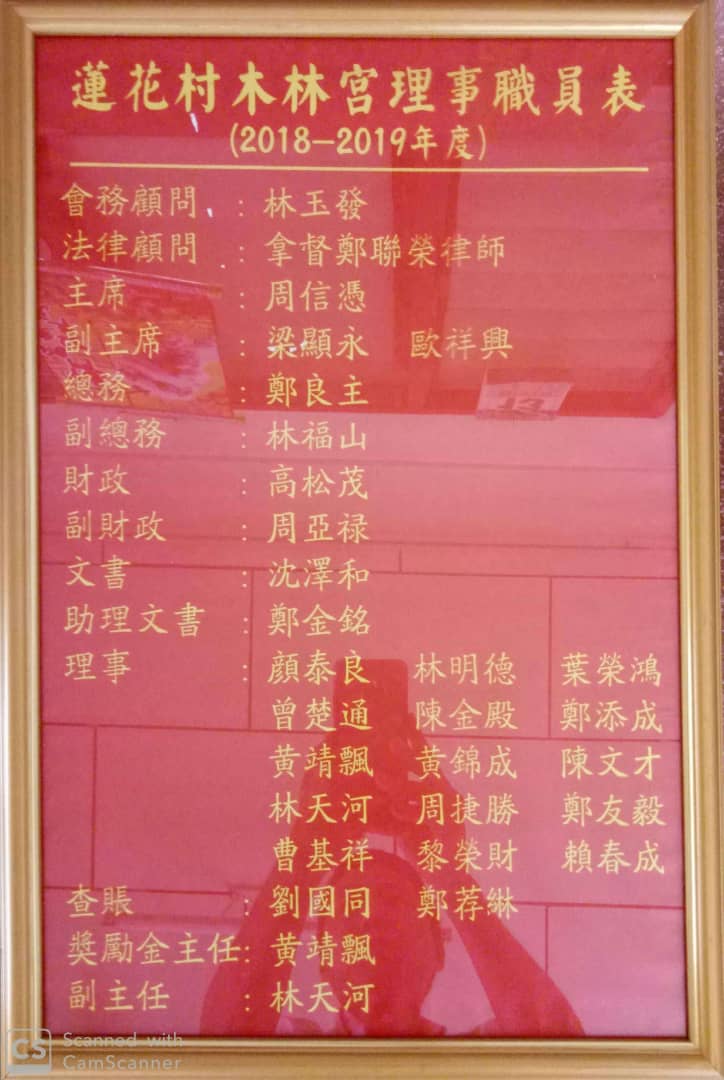 蓮花村木林宮理事職員表
(2018-2019年度)
會務顧問 : 林玉發
法律顧問 : 拿督鄭聯榮律師
主席 : 周信憑
副主席 : 梁顯永 歐祥興
總務 : 鄭良主
副總務 : 林福山
財政 : 高松茂
副財政 : 周亞禄
文書 : 沈澤和
助理文書 : 鄭金銘
理事 : 顏泰良 林明德 葉榮鴻
曾楚通 陳金殿 鄭添成
黃靖飄 黃錦成 陳文才
林天河 周捷勝 鄭友毅
曹基祥 黎榮財 賴春成
查賬 : 劉國同 鄭荐綝
獎勵金主任: 黃靖飄
副主任 : 林天河
13
CS Scanned with
CamScanner